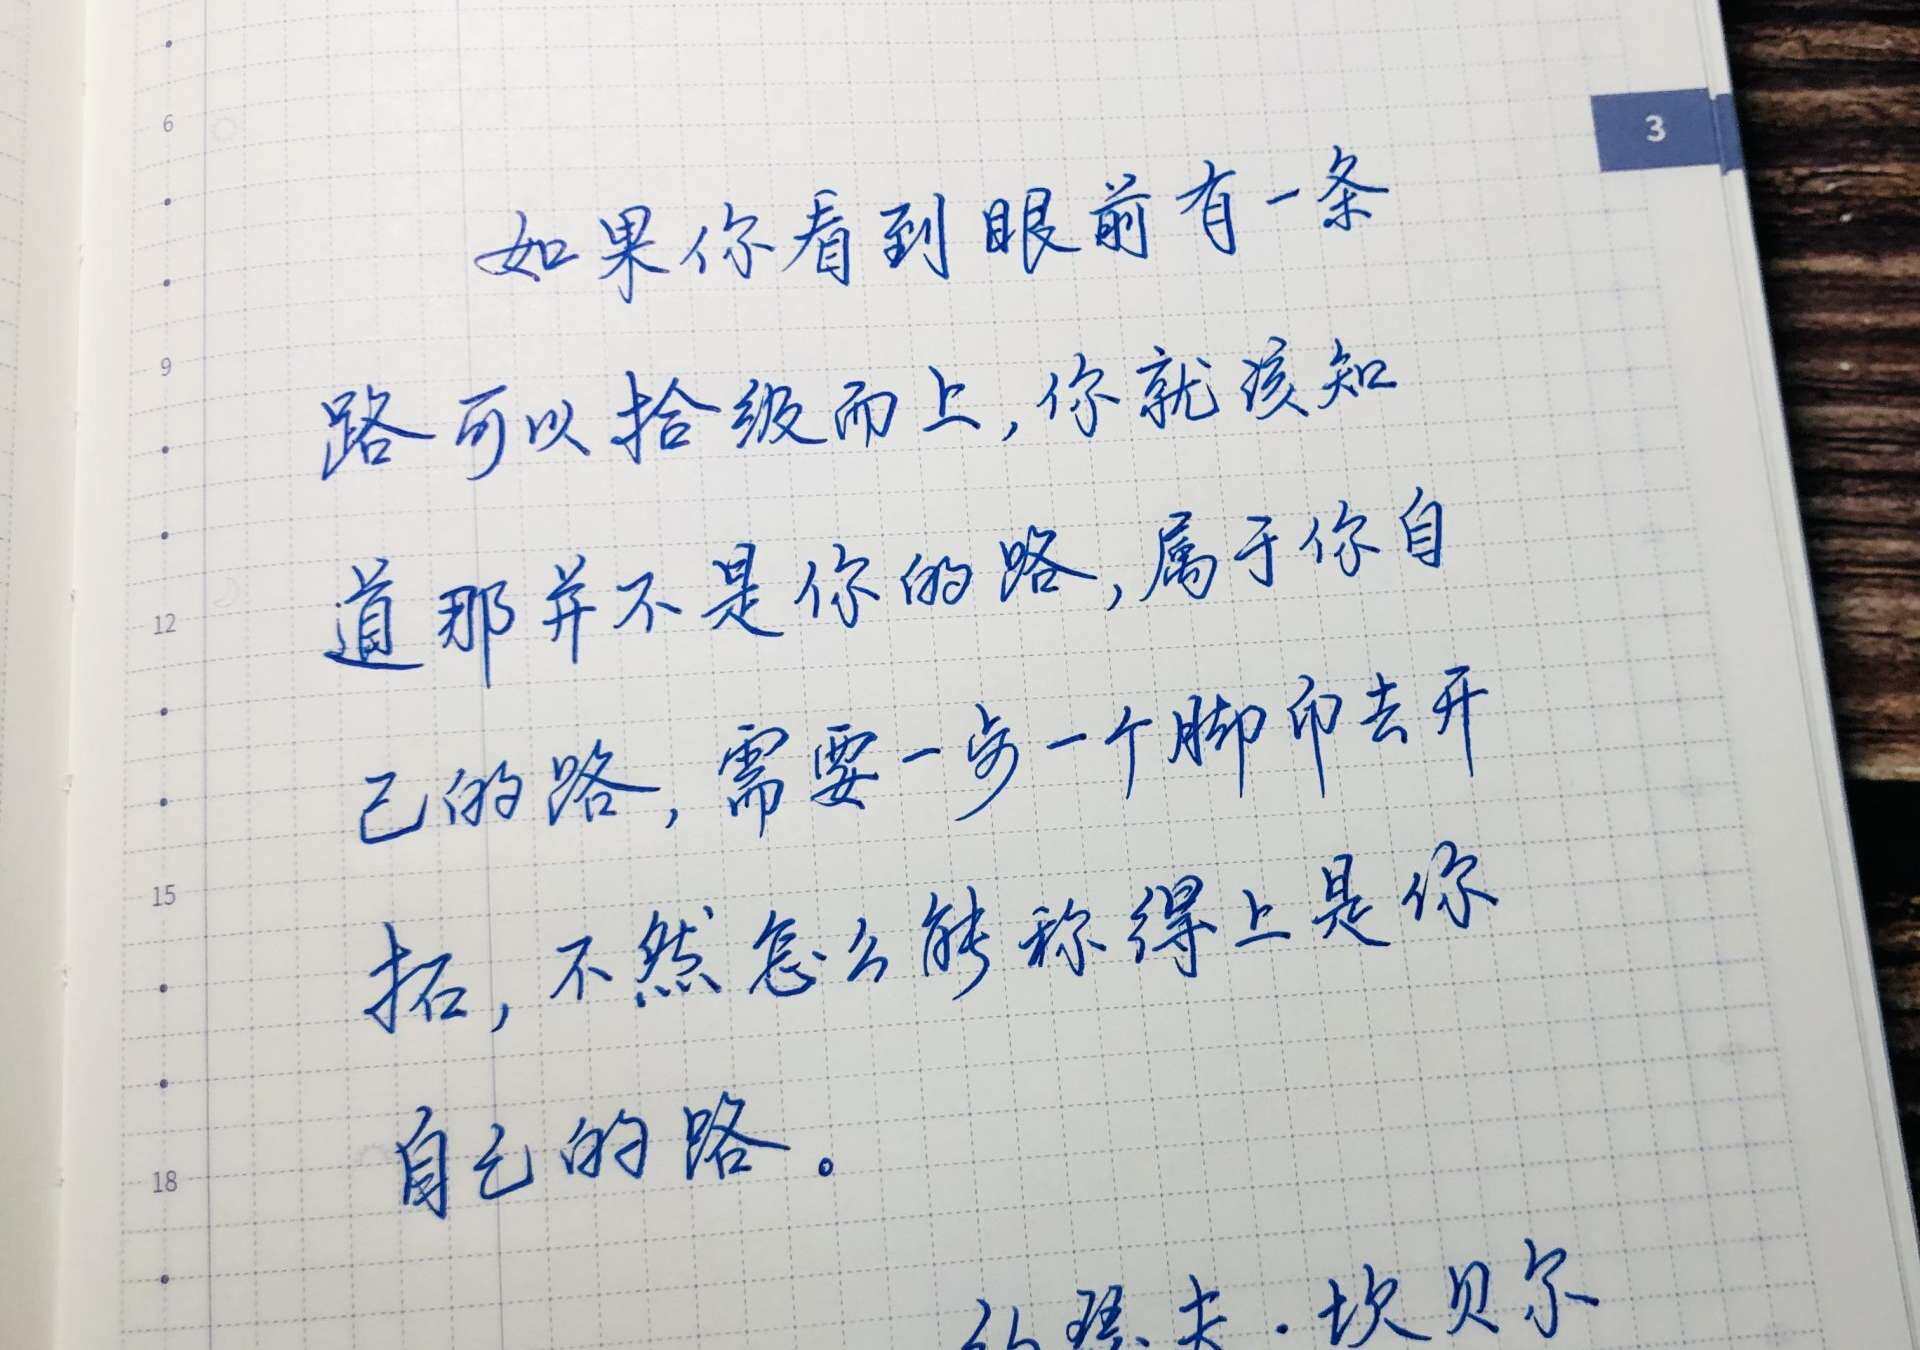 3
6
如果你看到眼前有一条
9
路可以拾级而上,你就该知
道那并不是你的路,属于你自
12
己的路,需要一步一个脚印去开
15
拓,不然怎么能称得上是你
18
自己的路。
约瑟夫·坎贝尔